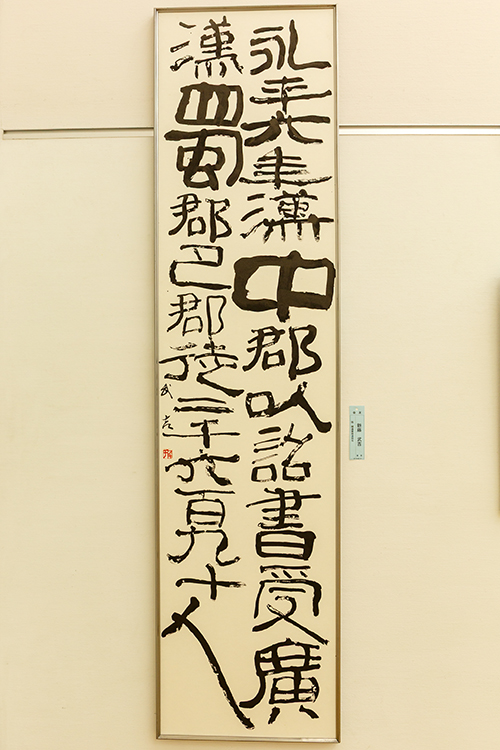 永平六年漢中郡以詔書受廣
漢蜀郡巴郡徒二千六百九十人
武吉